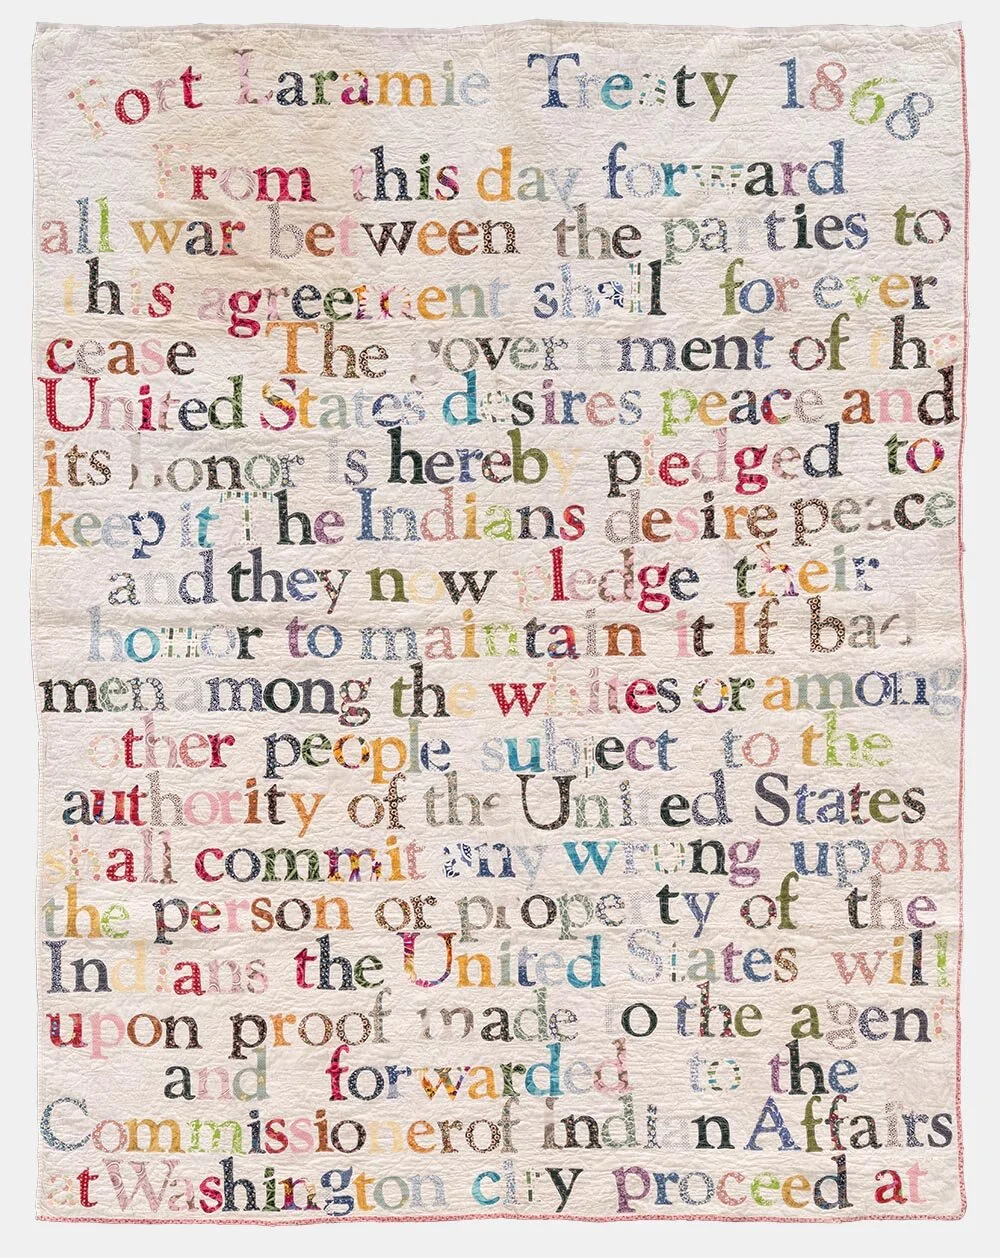 Fort Laramie Treaty 1868
From this day forward
all war between the parties to
this agreement shall for ever
cease The government of the
United States desires peace and
its honor is hereby pledged to
keep it The Indians desire peace
and they now pledge their
honor to maintain it If bad
men among the whites or among
other people subject to the
authority of the United States
shall commit any wrong upon
the person or property of the
Indians the United States will
upon proof made to the agent
and forwarded to the
Commissioner of Indian Affairs
at Washington city proceed at